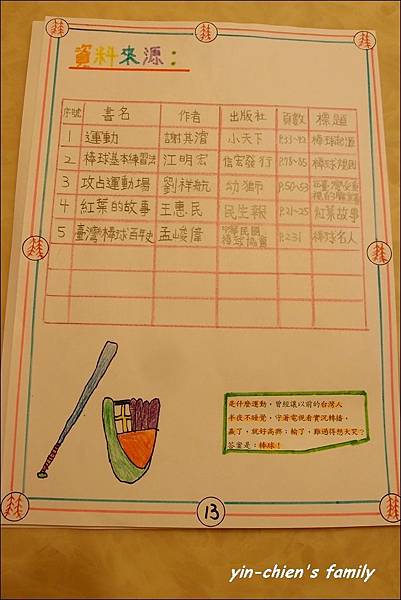 資料來源：
序號 書名 作者 出版社 頁數 標題
1 運動 謝其濬 小天下 P.33~42 棒球起源
2 棒球基本練習法 江明宏 信宏發行 P.78~85 棒球規則
3 攻占運動場 劉祥航 幼獅 P.50~53
4 紅葉的故事 王惠民 民生報 P.21~25 紅葉故事
5 臺灣棒球百年史 孟峻瑋 中華民國棒球協會 P.231 棒球名人
是什麼運動，曾經讓以前的台灣人
半夜不睡覺，守著電視看實況轉播，
贏了，就好高興；輸了，難過得想大哭？
答案是：棒球！
13
yin-chien's family